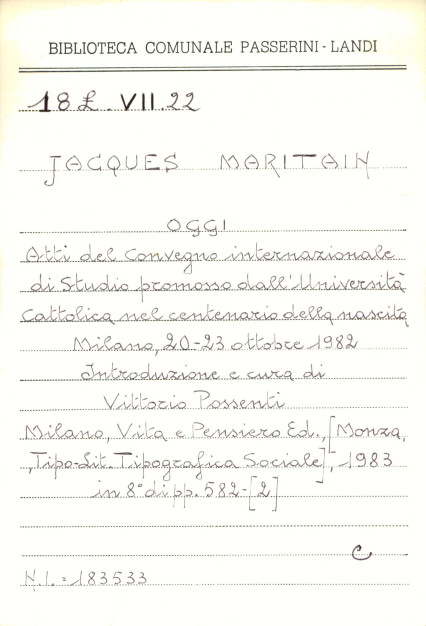 BIBLIOTECA COMUNALE PASSERINI - LANDI
18 £. VII. 22
JACQUES MARITAIN
OGGI
Atti del Convegno internazionale
di Studio promosso dall'Università
Cattolica nel centenario della nascita
Milano, 20-23 ottobre 1982
Introduzione e cura di
Vittorio Possenti
Milano, Vita e Pensiero Ed., [Monza,
, Tipo-Lit. Tipografica Sociale], 1983
in 8° di pp. 582-[2]
C
N.I. = 183533